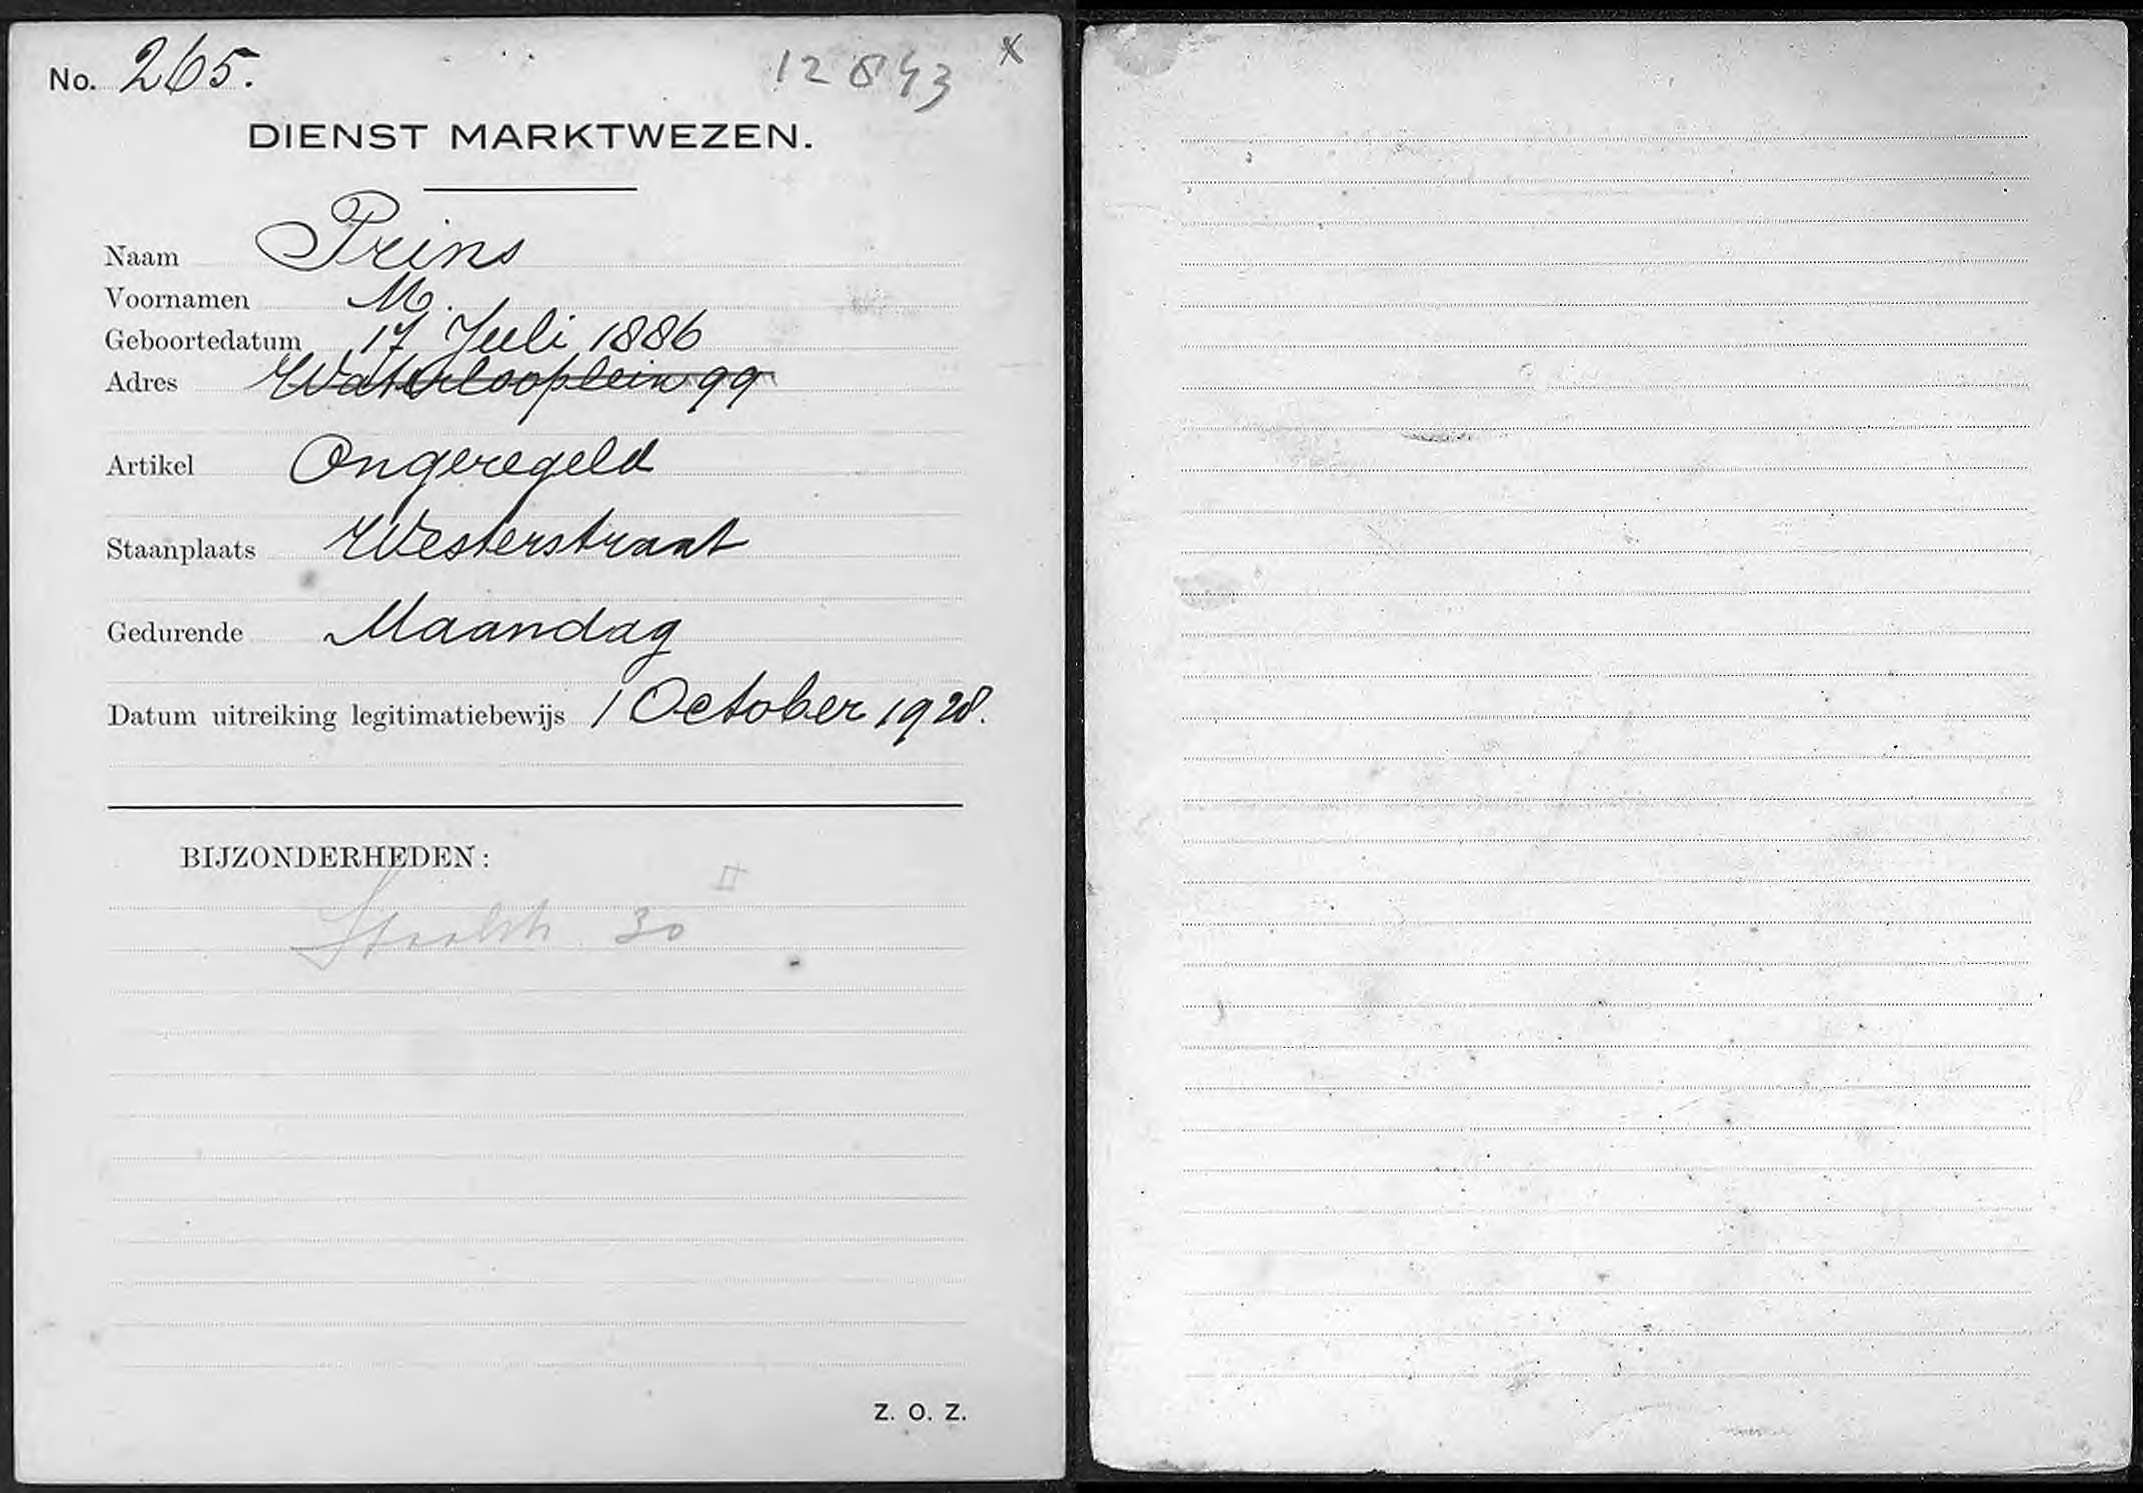 No. 265. 12843 x
DIENST MARKTWEZEN.
Naam Prins
Voornamen M.
Geboortedatum 17 Juli 1886
Adres Waterlooplein 99
Artikel Ongeregeld
Staanplaats Westerstraat
Gedurende Maandag
Datum uitreiking legitimatiebewijs 1 October 1928.
BIJZONDERHEDEN:
Staalstr. 30 II
Z. O. Z.